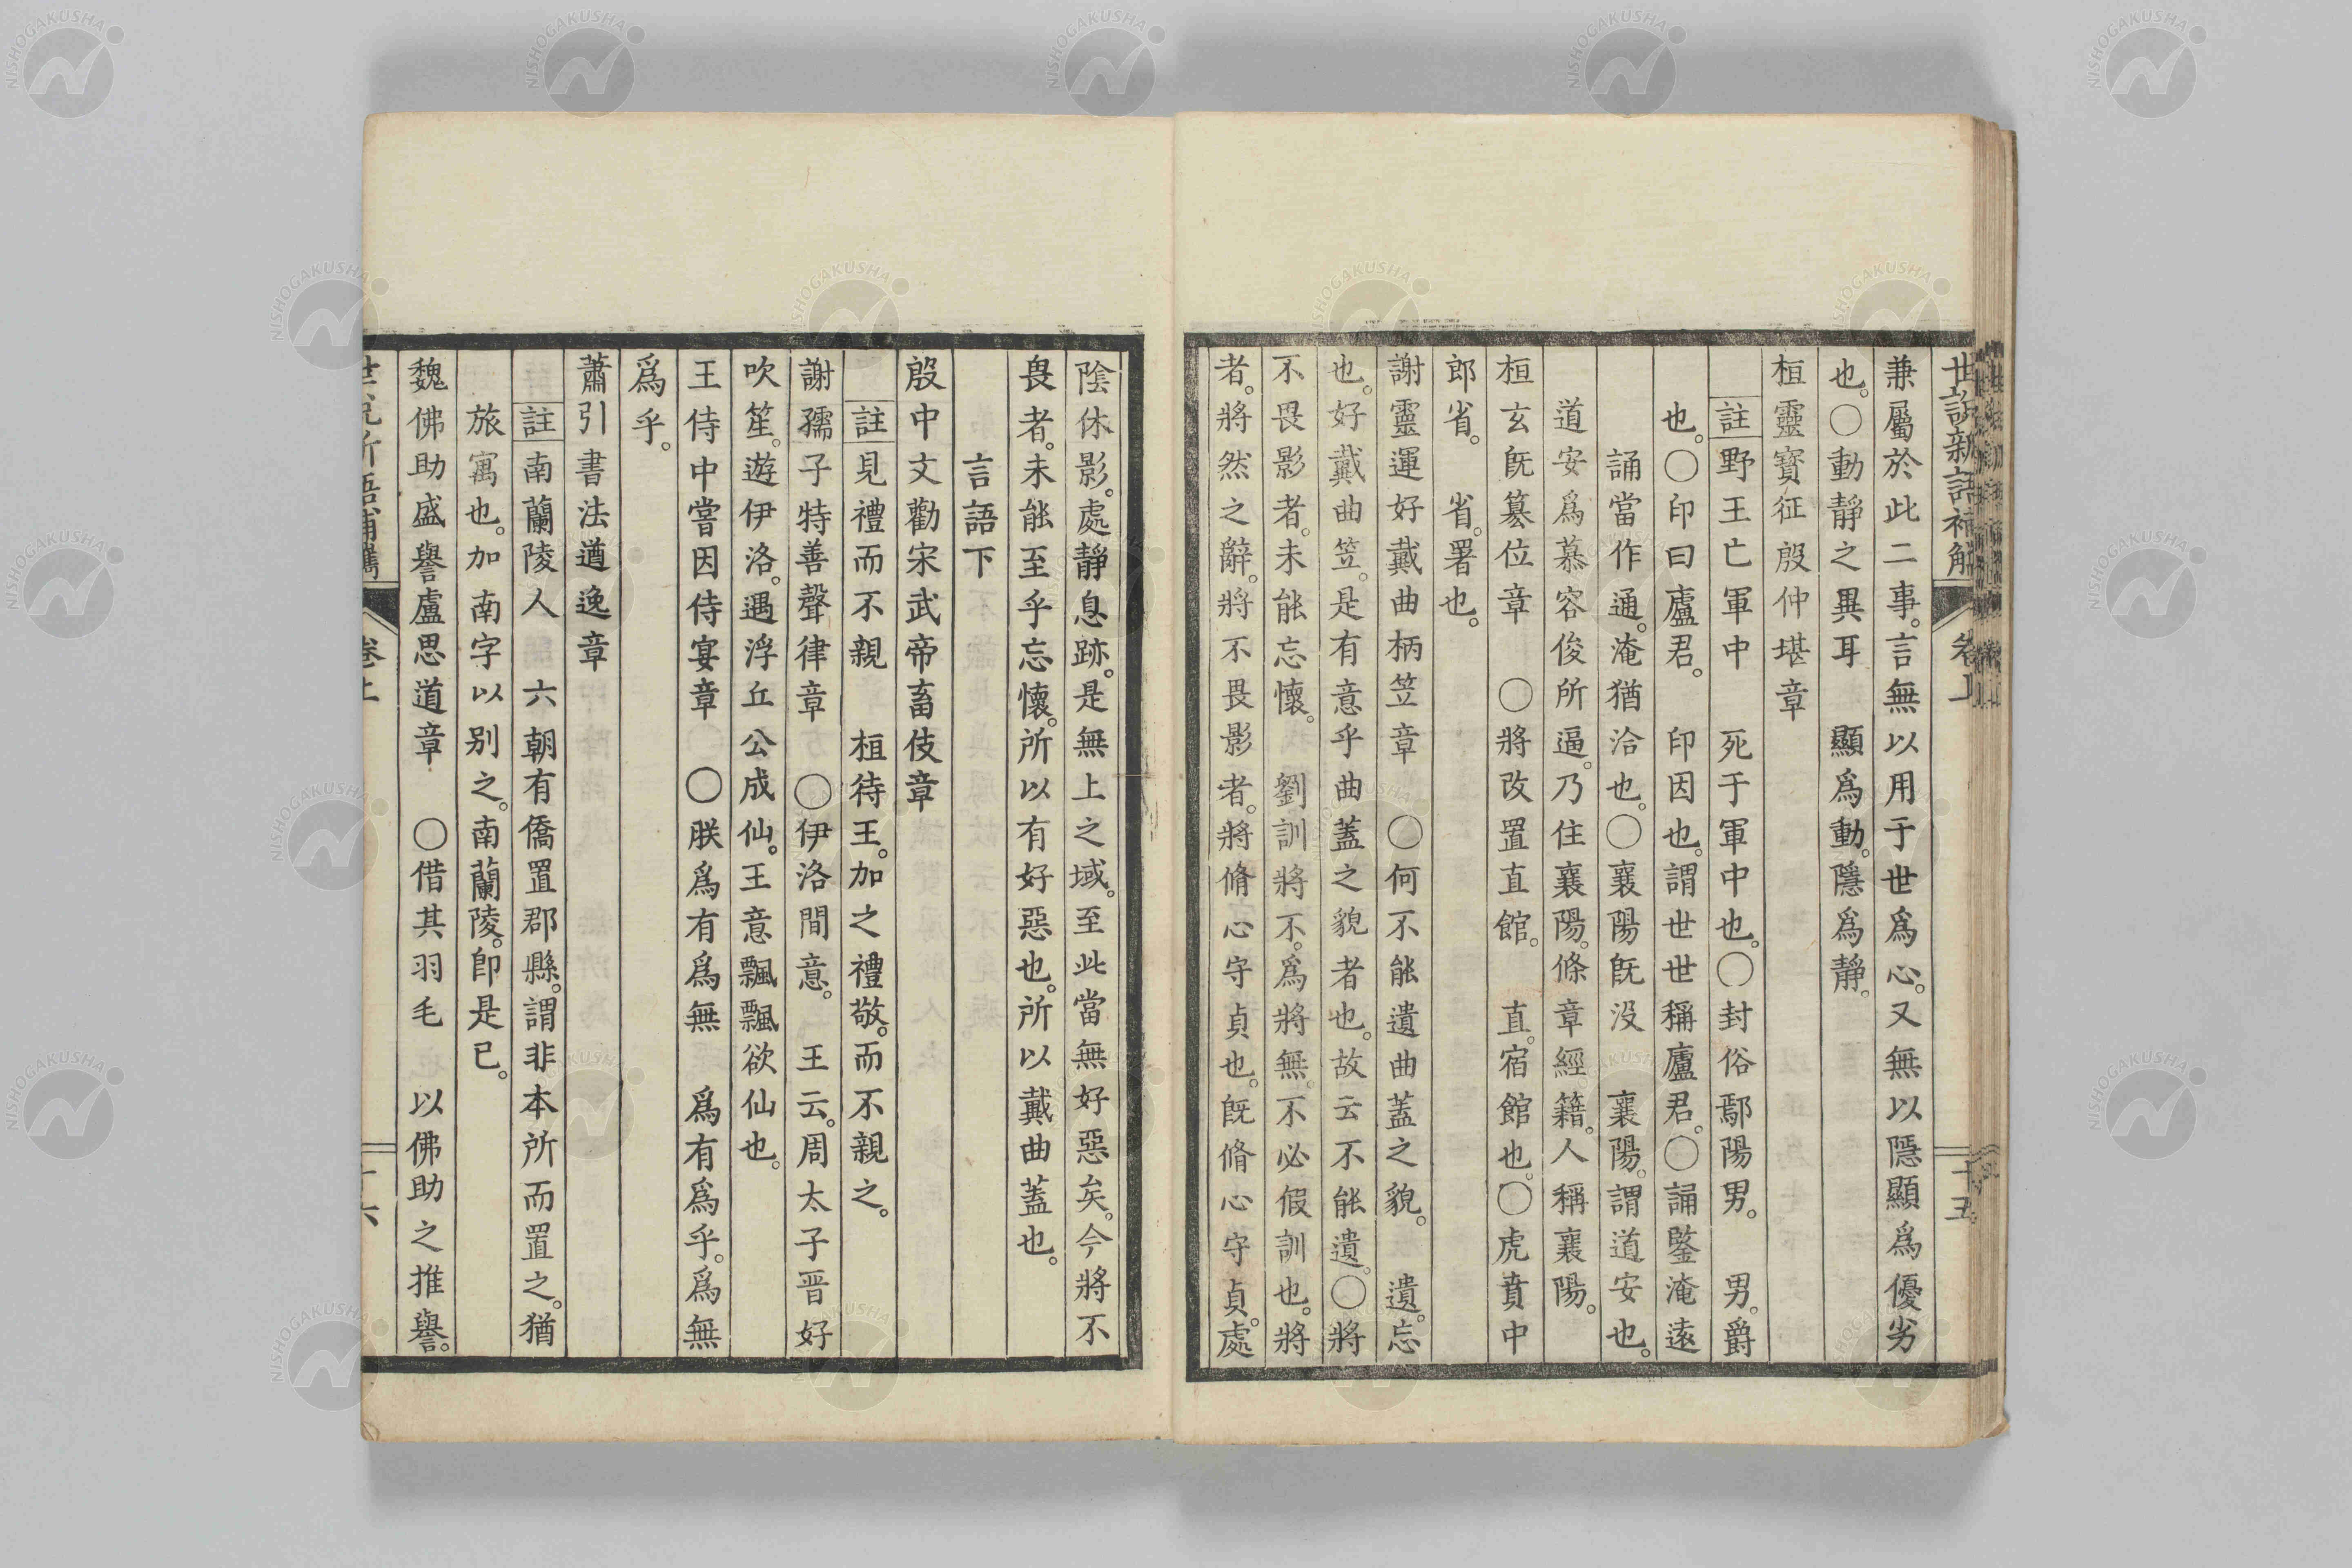 世說新語補觿 卷上 十五
兼屬於此二事。言無以用于世爲心。又無以隱顯爲優劣
也。〇動靜之異耳 顯爲動。隱爲靜。
桓靈寶征殷仲堪章
註野王亡軍中 死于軍中也。〇封俗鄢陽男。 男。爵
也。〇印曰廬君。 印因也。謂世世稱廬君。〇誦鑒淹遠
誦當作通。淹猶洽也。〇襄陽既没 襄陽。謂道安也。
道安爲慕容俊所逼。乃住襄陽。條章經籍。人稱襄陽。
桓玄既簒位章 〇將改置直館。 直。宿館也。〇虎賁中
郎省。 省。署也。
謝靈運好戴曲柄笠章 〇何不能遺曲蓋之貌。 遺。忘
也。好戴曲笠。是有意乎曲蓋之貌者也。故云不能遺。〇將
不畏影者。未能忘懷。 劉訓將不。爲將無。不必假訓也。將
者。將然之辭。將不畏影者。將脩心守貞也。既脩心守貞。處
陰休影。處靜息跡。是無上之域。至此當無好惡矣。今將不
畏者。未能至乎忘懷。所以有好惡也。所以戴曲蓋也。
言語下
殷中文勸宋武帝畜伎章
註見禮而不親 桓待王。加之禮敬。而不親之。
謝孺子特善聲律章 〇伊洛間意。 王云。周太子晋好
吹笙。遊伊洛。遇浮丘公成仙。王意飄飄欲仙也。
王侍中嘗因侍宴章 〇朕爲有爲無 爲有爲乎。爲無
爲乎。
蕭引書法遒逸章
註南蘭陵人 六朝有僑置郡縣。謂非本所而置之。猶
旅寓也。加南字以别之。南蘭陵。卽是已。
魏佛助盛譽盧思道章 〇借其羽毛 以佛助之推譽。
卷上